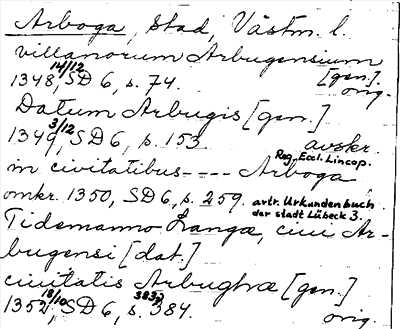 Arboga, stad, Västm. l.
villanorum Arbugensium
[gen.]
1348 14/12, SD 6, s. 74. orig.
Datum Arbugis [gen.]
1349 3/12, SD 6, s. 153. avskr.
Reg. Eccl. Lincop.
in civitatibus---- Arboga
omkr. 1350, SD 6, s. 259. avtr. Urkundenbuch
der stadt Lübeck 3.
Tidemanno Langæ, ciui Ar-
bugensi [dat.]
ciuitatis Arbughæ [gen.]
1352 18/10, SD 6, s. 383, 384. orig.